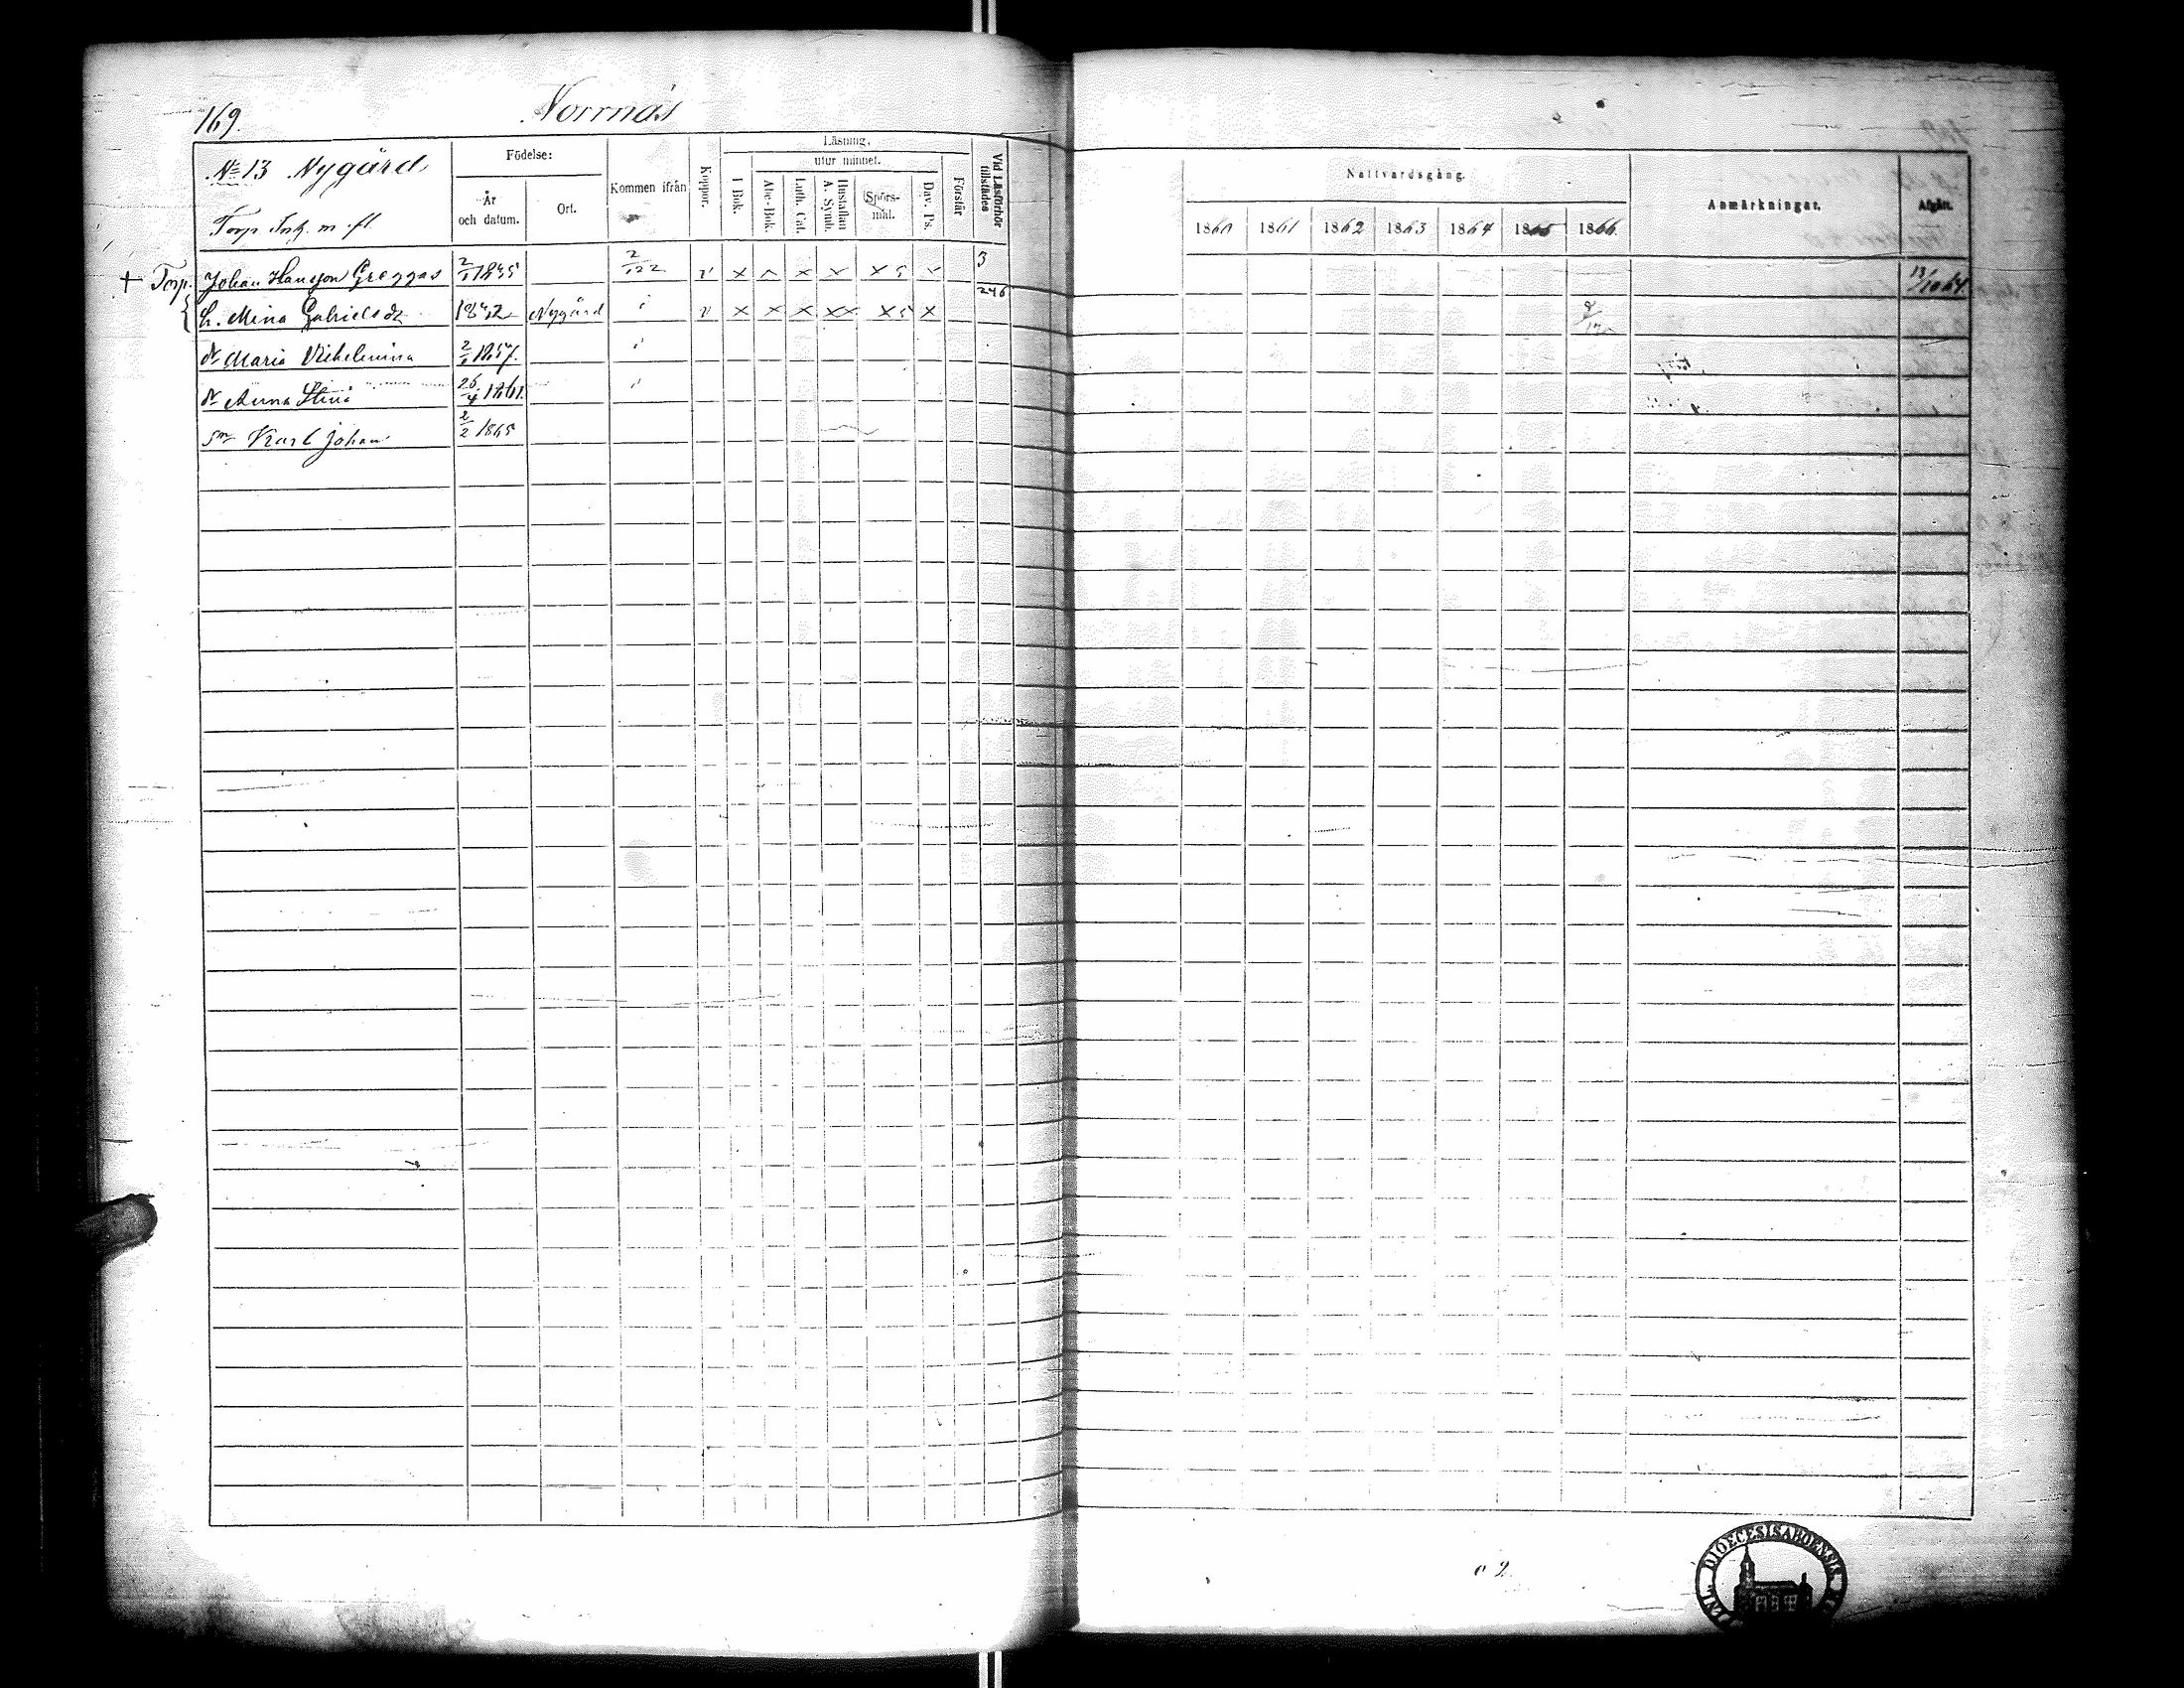 169.
Norrnäs
No 13 Nygård
Torp Inh. m fl.
Födelse:
År och datum.
Ort.
Kommen ifrån
Koppor.
Läsning.
utur minnet.
I Bok.
Abc-Bok.
Luth. Cat.
Hustaflan A. Symb.
Spörs-mål.
Dav. Ps.
Förstår
Vid Läsförhör tillstädes
Nattvardsgång.
1860 1861 1862 1863 1864 1865 1866
Anmärkningar.
Afgått.
+ Torp. Johan Hansson Greggas 2/1 1835 2/122 v x x x x x 5 3 13/10 64
h. Mina Gabrielsdr 1832 Nygård v x x x xx x 5 x 246
dr Maria Vilhelmina 2/1 1857.
dr Anna Stina 26/4 1861.
sn Karl Johan 2/2 1865
DIOECESIS ABOENSIS